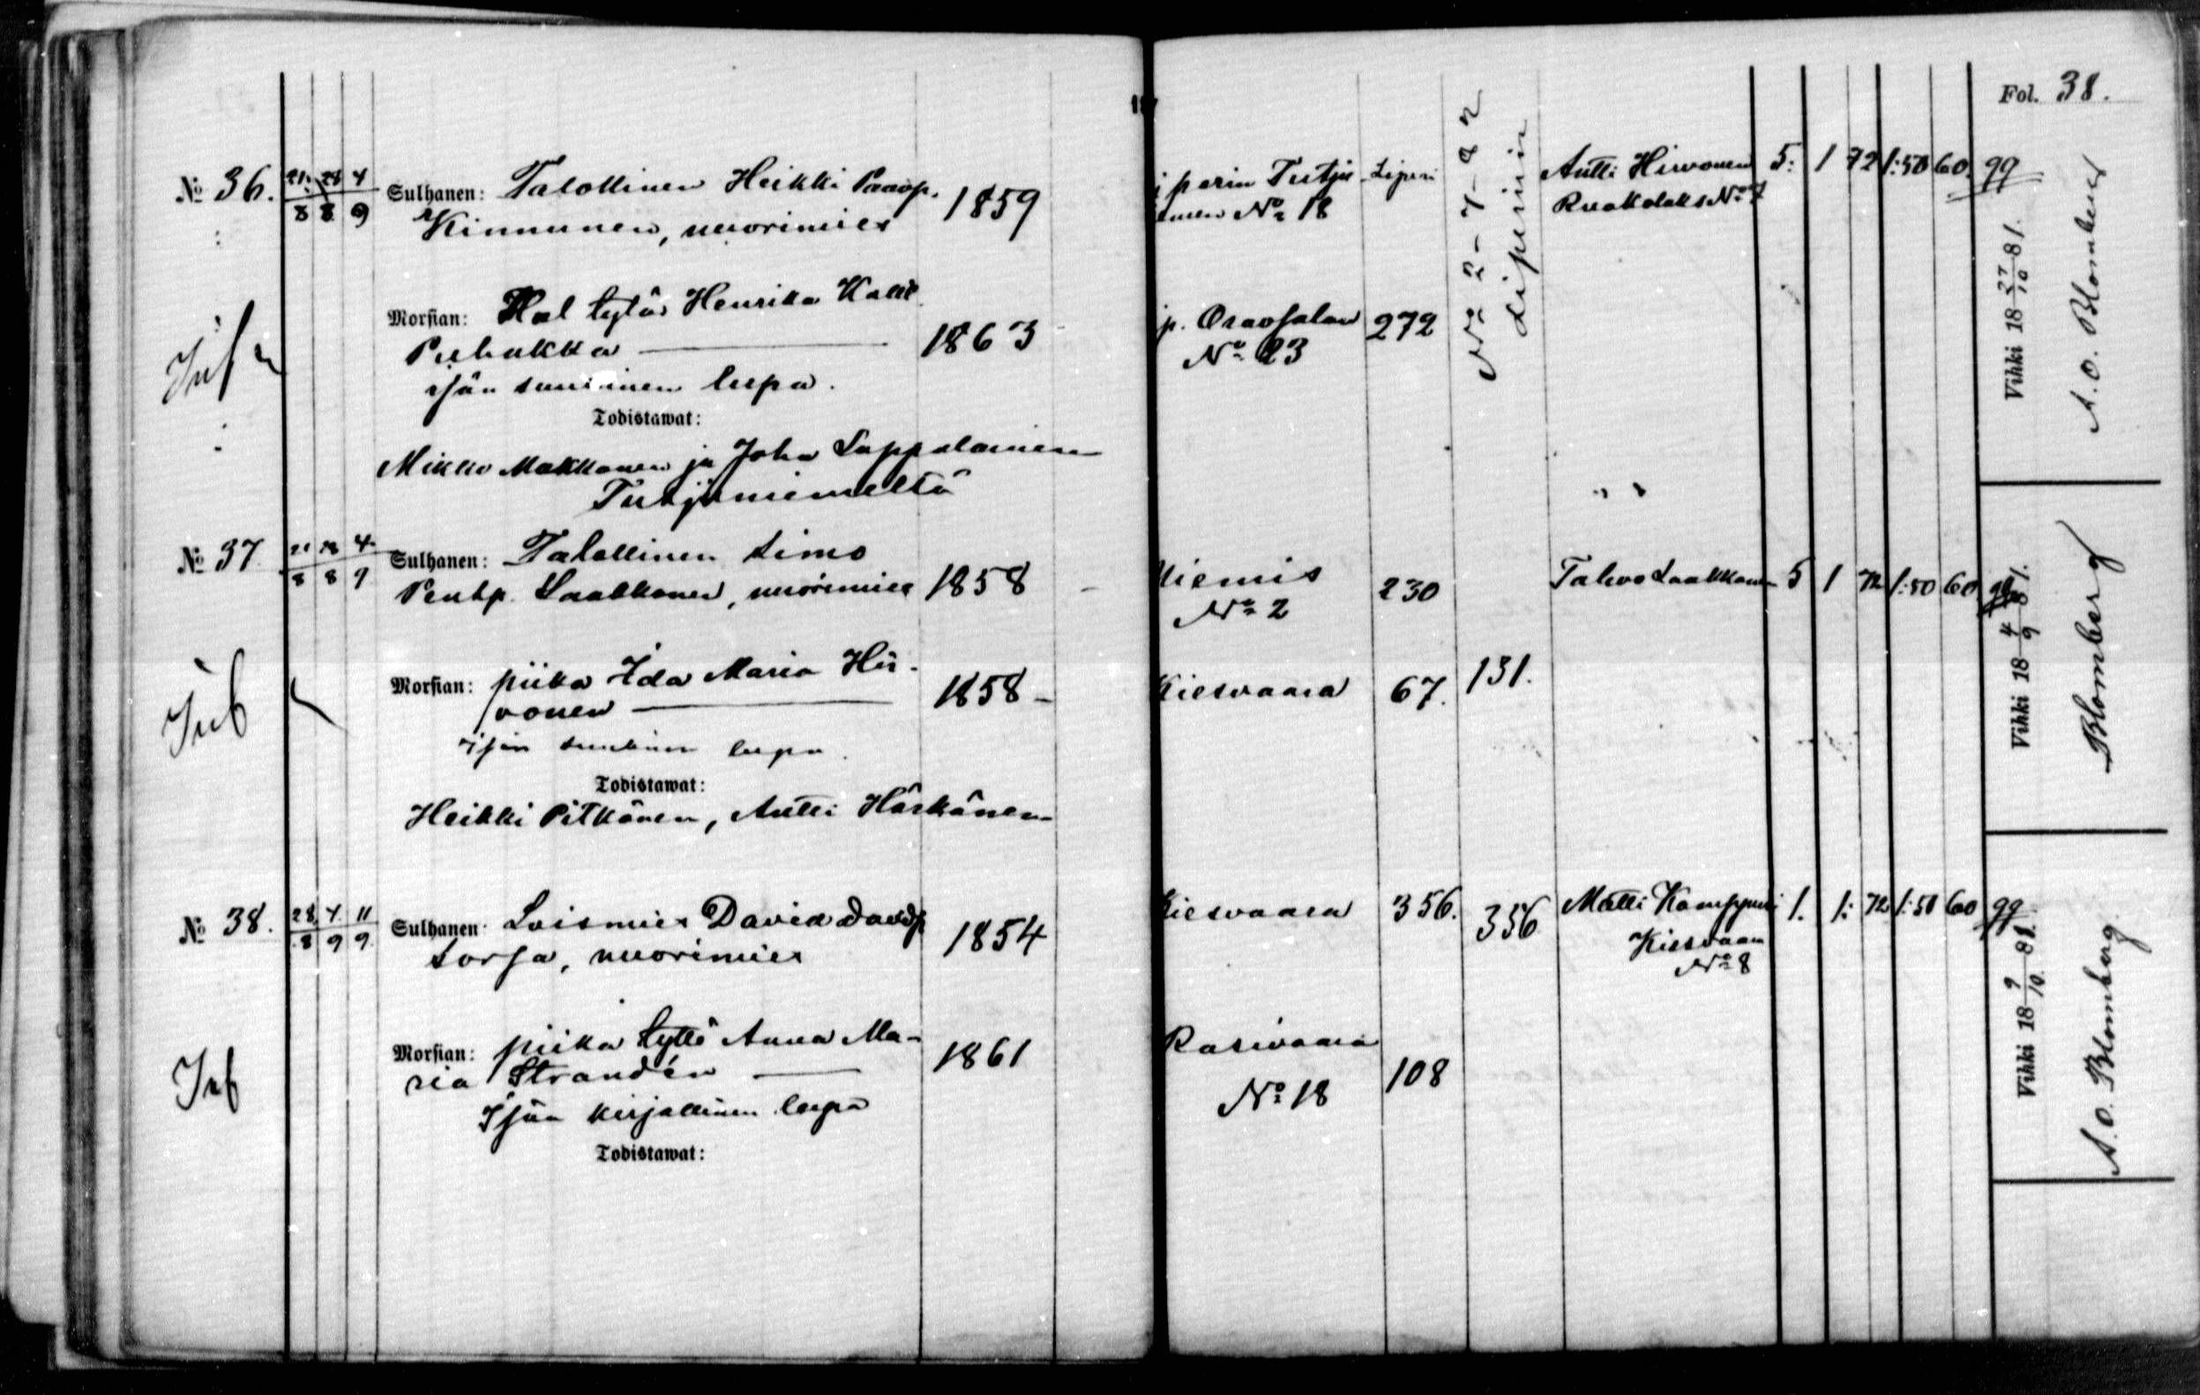 Fol. 38.
№ 36.
21. 28 4
8 8 9
Sulhanen: Talollinen Heikki Paavp.
Kinnunen, nuorimies
1859
iperin Tutju
niemen № 18
Liperi
№ 2-7-92
Liperiin
Antti Hirvonen
№ 7
5. 1 72 1:50 60. gg
Morsian: Tal tytär Henrika
Puhakka
1863
isän suullinen lupa.
p. Oravisalon
№ 23
272
Todistawat:
Mikko Makkonen ja Juho Lappalainen
Tutjuniemeltä
Vihki 18 27/10 81.
A. O. Blomberg
Jnf
№ 37
21 28 4
8 8 9
Sulhanen: Talollinen Simo
Pentp. Laakkonen, nuorimies
1858
Niemis
№ 2
230
Tahvo Laakkonen
5 1 72 1:50 60 gg
Morsian: piika Ida Maria Hir-
vonen
1858
Kiesvaara
67.
131.
Isän suullinen lupa.
Todistawat:
Heikki Pitkänen, Antti Härkänen
Vihki 18 4/9 81.
Blomberg
№ 38.
28 4 11
8 9 9
Sulhanen: Loismies David Davidp
Sorsa, nuorimies
1854
Kiesvaara
356.
356
Matti Kamppuri
Kiesvaara
№ 8
1. 1: 72 1:50 60 gg
Morsian: piika tyttö Anna Ma-
ria Strandén
1861
Rasivaara
№ 18
108
Isän kirjallinen lupa
Todistawat:
Vihki 18 9/10 81.
A. O. Blomberg